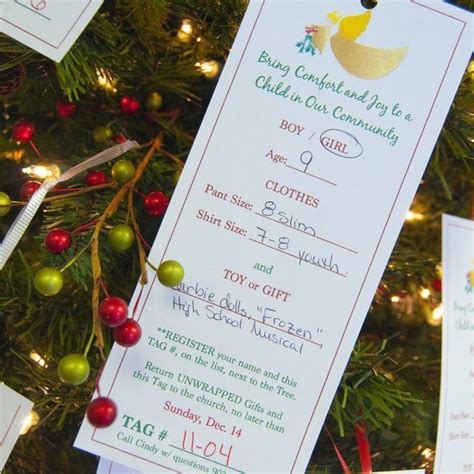 6
Bring Comfort and Joy to a
Child in Our Community
BOY / GIRL
Age: 9
CLOTHES
Pant Size: 8 slim
Shirt Size: 7-8 youth
and
TOY or GIFT
Barbie dolls, "Frozen"
High School Musical
**REGISTER your name and this
TAG #, on the list, next to the Tree.
Return UNWRAPPED Gifts and
this Tag to the church, no later than
Sunday, Dec. 14
TAG # 11-04
Call Cindy w/ questions 903
Bring Com
Child in